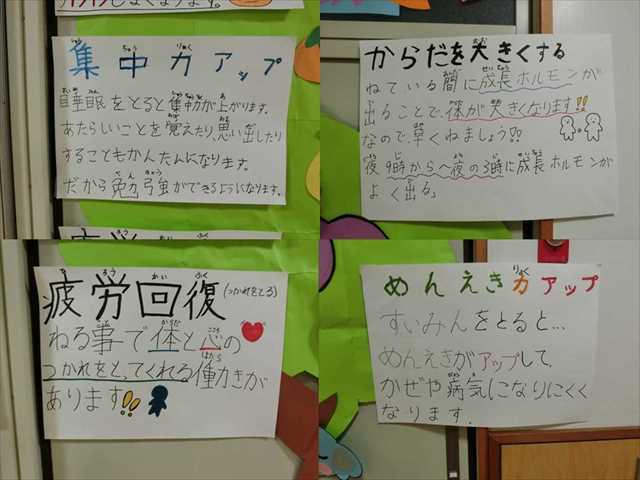 集中力アップ
睡眠をとると集中力が上がります。
あたらしいことを覚えたり、思い出したり
することもかんたんになります。
だから勉強ができるようになります。
からだを大きくする
ねている間に成長ホルモンが
出ることで、体が大きくなります!!
なので早くねましょう!!
夜9時から〜夜の3時に成長ホルモンが
よく出る。
疲労回復(つかれをとる)
ねる事で体と心の
つかれをとってくれる働きが
あります!!
めんえき力アップ
すいみんをとると...
めんえきがアップして、
かぜや病気になりにくく
なります。